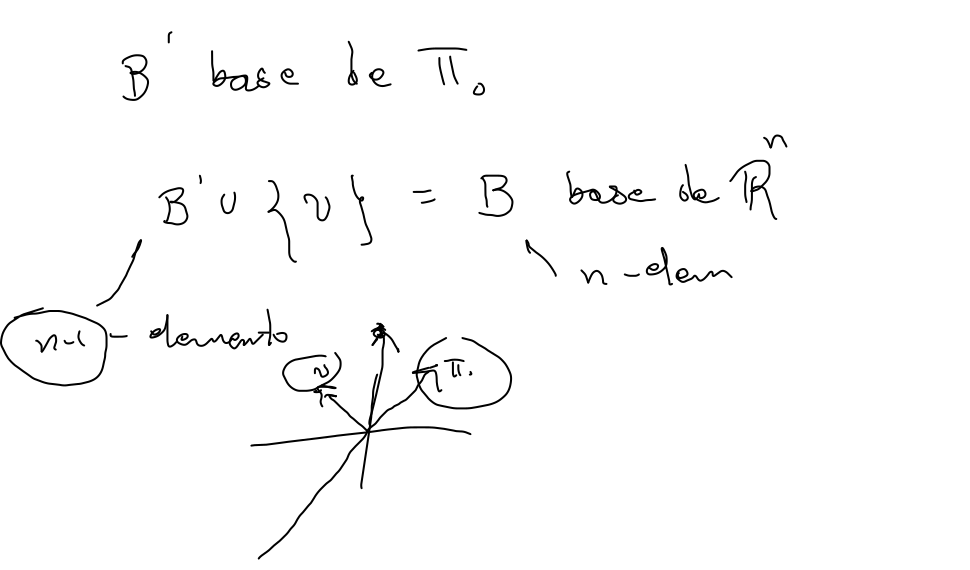 B' base de π₀
B' ∪ {v} = B base de ℝⁿ
n-elem
n-1 - elemento
v
π₀